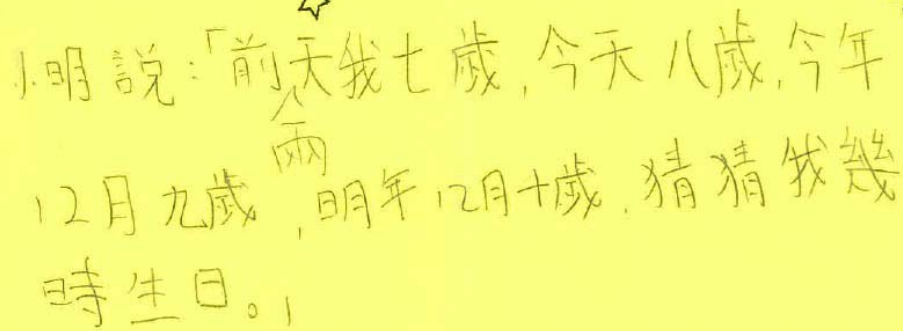 小明說：「前兩天我七歲，今天八歲，今年
12月九歲，明年12月十歲，猜猜我幾
時生日。」